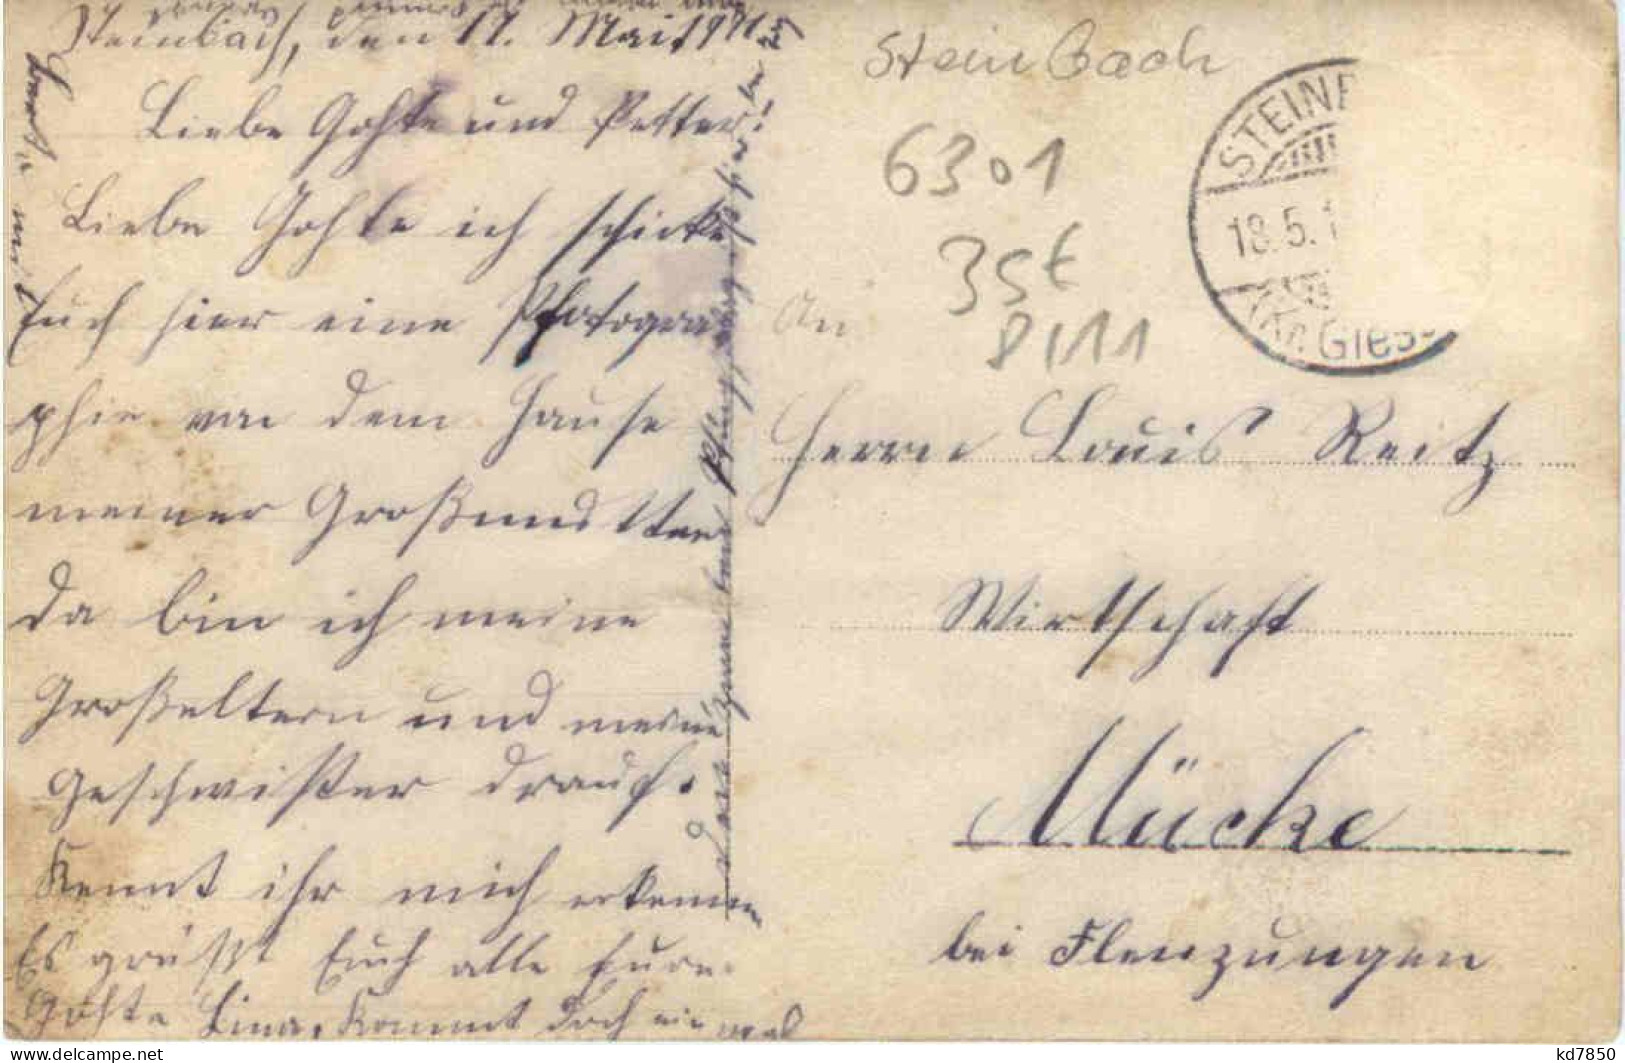 Steinbach, den 17. Mai 1911.
Liebe Gohte und Petter!
Liebe Gohte ich schicke
Euch hier eine Photogra
phie von dem Hause
meiner Großmutter
da bin ich meine
Großeltern und meine
Geschwister drauf.
Kennt ihr mich erkennen
Es grüßt Euch alle Eure
Gohte Lina. Kommt doch ein mal
Steinbach
6301
35€
8/11
STEINB
18.5.1
Gies
An
Herrn Louis Reitz
Wirtschaft
Mücke
bei Flenzungen
kd7850